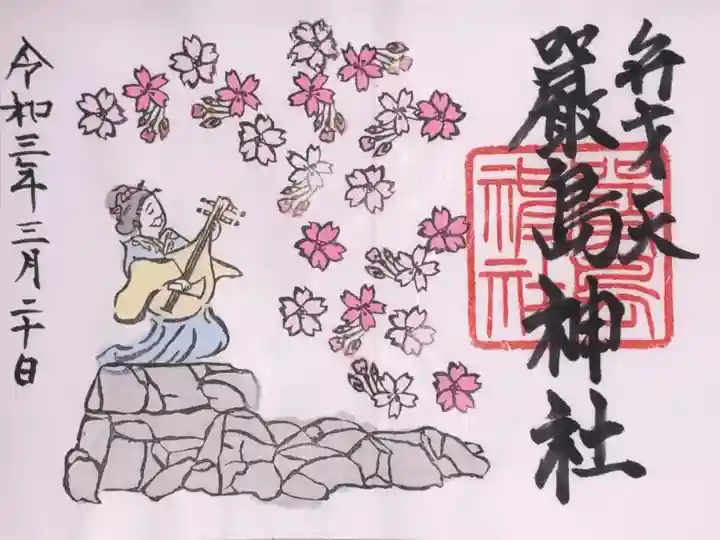 弁才天
嚴島神社
嚴島
神社
令和三年三月二十日